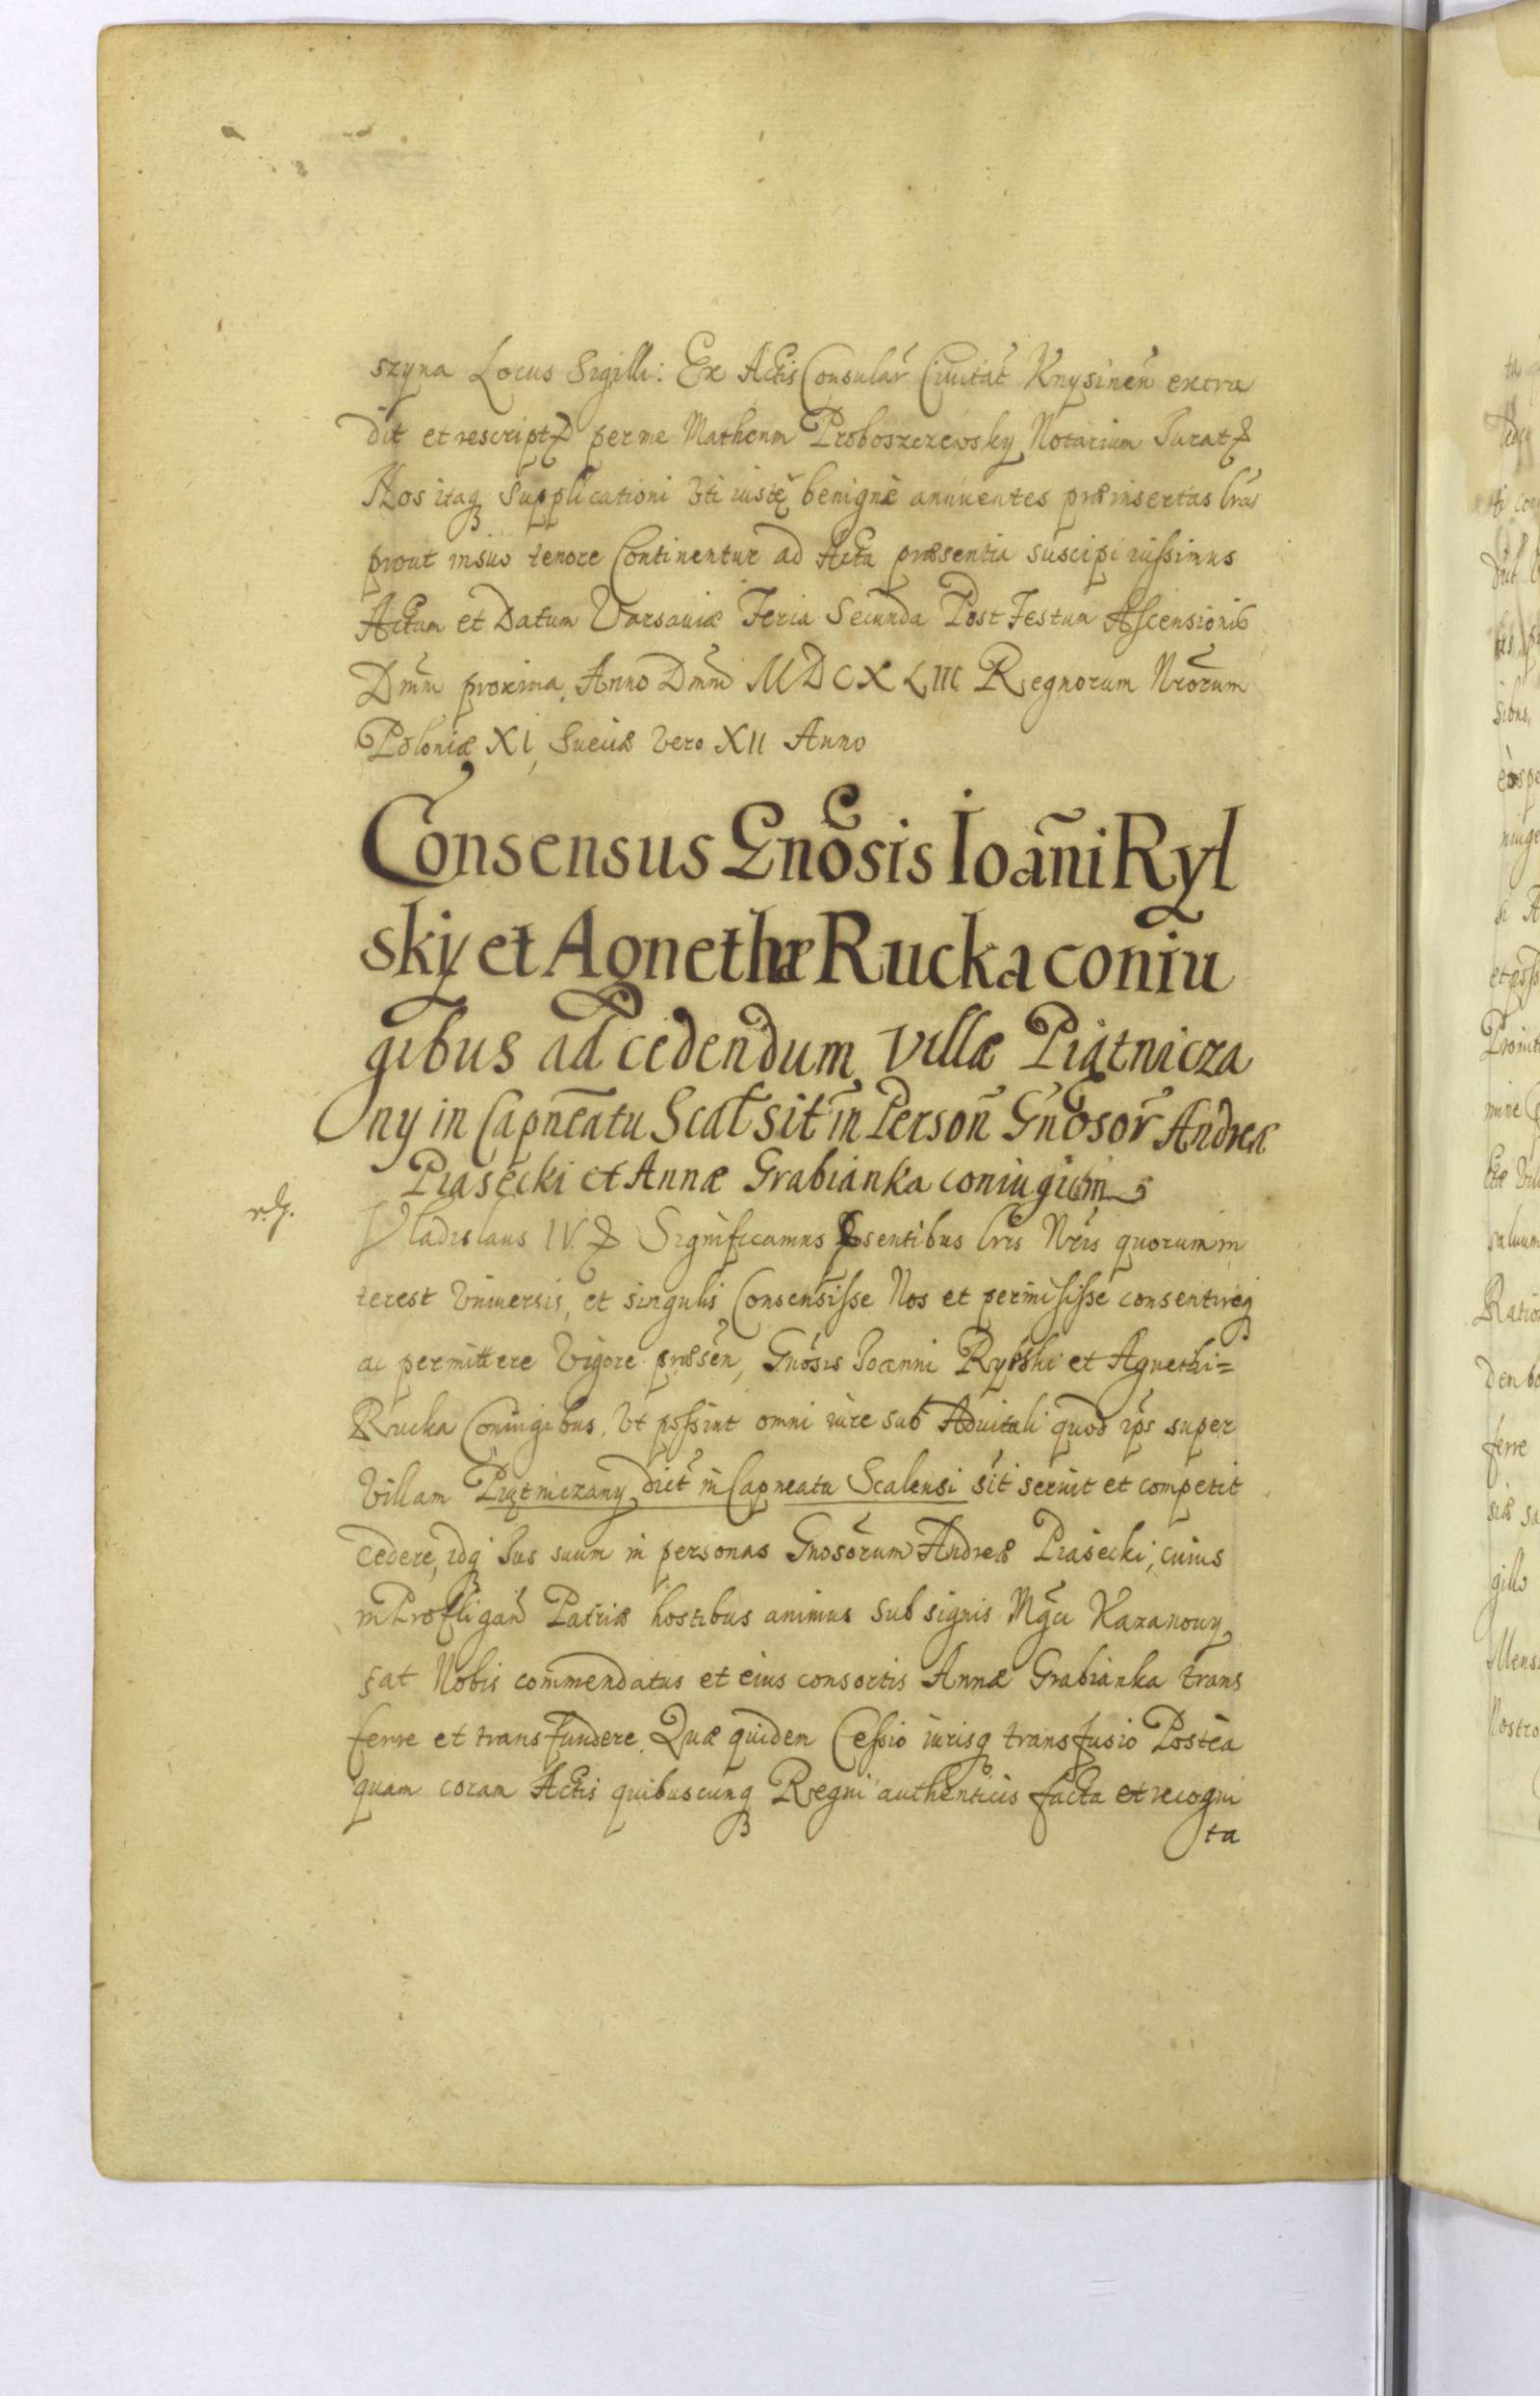 szyna Locus Sigilli: Ex Actis Consular̃ Ciuitat̃ Knysineñ extra
dit et rescript per me Matheum Proboszczewsky Notarium Jurat
Nos itaq supplicationi vti iustę benigne annuentes præinsertas lras
prout in suo tenore Continentur ad Acta præsentia suscipi iussimus
Actum et Datum Varsauiæ Feria Secunda Post Festum Ascensionis
Dnĩn proxima Anno Dnĩn MDCXLIII Regnorum Nrõrum
Poloniæ XI, Sueciæ vero XII Anno
Consensus Gnõsis Ioãni Ryl
sky et Agnethæ Rucka coniu
gibus ad cedendum Villæ Piątnicza
ny in Capneatu Scal̃ sit̃ in Persoñ Gnõsor̃ Andreæ
Piasecki et Annæ Grabianka coniugium
Vladislaus IV. Significamus Psentibus lris Nris quorum in
terest Vniuersis, et singulis Consensisse Nos et permisisse consentireq
ac permittere Vigore præseñ, Gnõsis Joanni Rylski et Agnethi=
Rucka Coniugibus, Vt possint omni iure suo Aduitali quod ips super
Villam Piątniczany dict̃ in Capneatu Scalensi sit̃ seruit et competit
Cedere, idq Jus suum in personas Gnosõrum Andreæ Piasecki, cuius
in Profligañ Patriæ hostibus animus sub signis Mgci Kazanowy
sat Nobis commendatus et eius consortis Annæ Grabianka trans
ferre et transfundere. Quæ quidem Cessio iurisq transfusio Postea
quam coram Actis quibuscunq Regni authenticis facta et recogni
ta